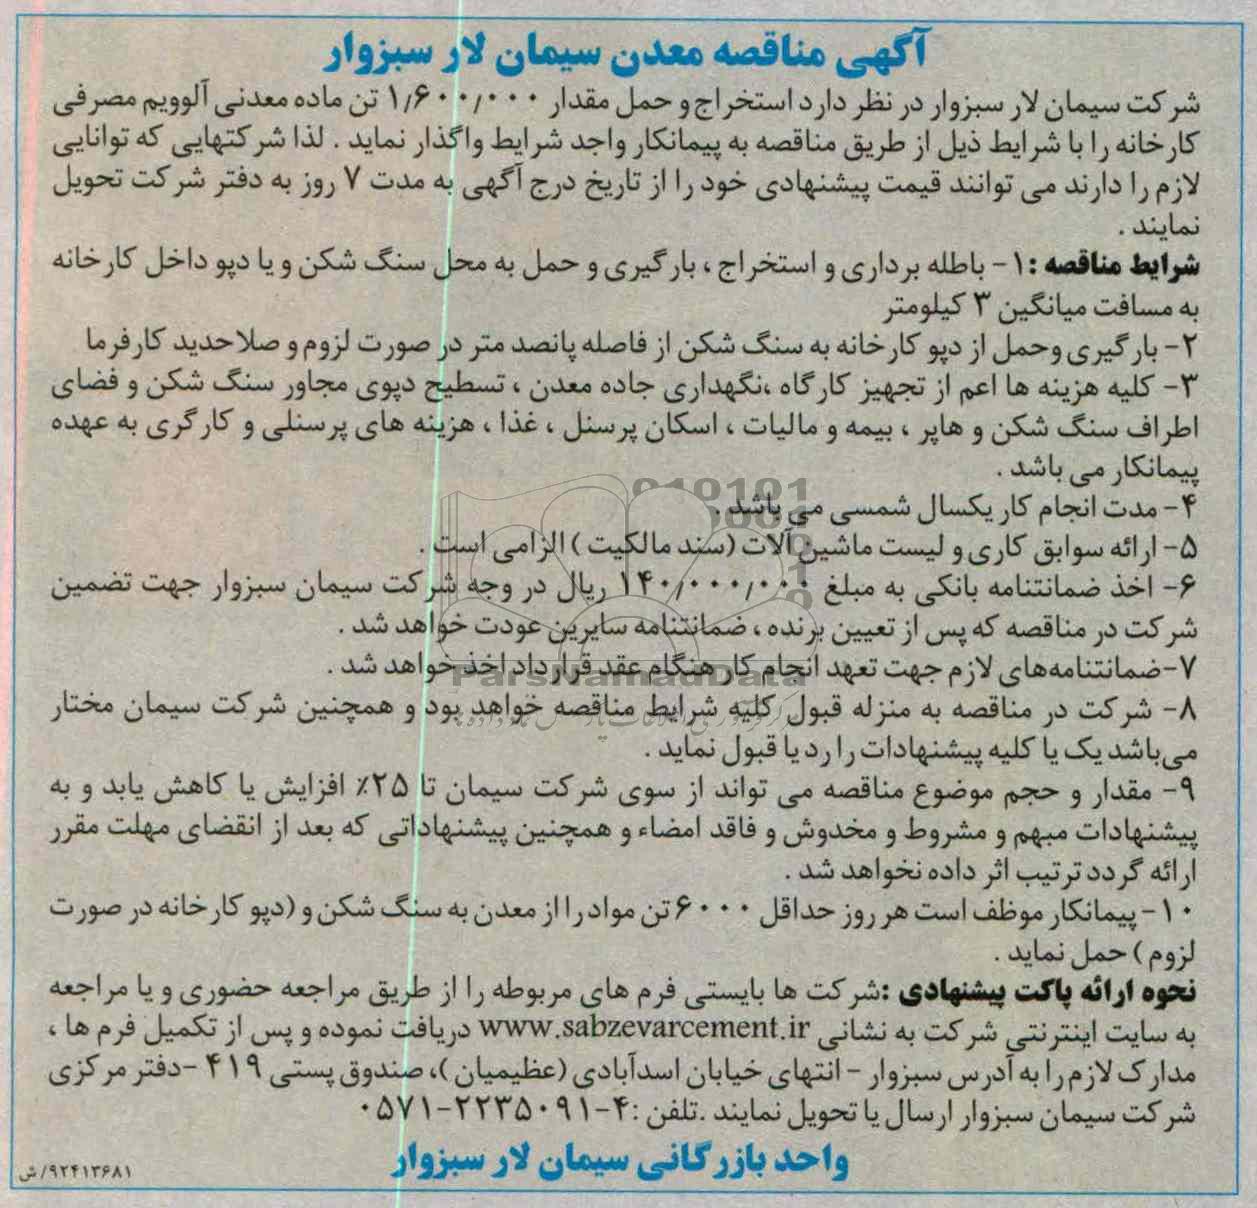 آگهی مناقصه معدن سیمان لار سبزوار
شرکت سیمان لار سبزوار در نظر دارد استخراج و حمل مقدار ۱/۶۰۰/۰۰۰ تن ماده معدنی آلوویم مصرفی
کارخانه را با شرایط ذیل از طریق مناقصه به پیمانکار واجد شرایط واگذار نماید . لذا شرکتهایی که توانایی
لازم را دارند می توانند قیمت پیشنهادی خود را از تاریخ درج آگهی به مدت ۷ روز به دفتر شرکت تحویل
نمایند .
شرایط مناقصه :۱- باطله برداری و استخراج ، بارگیری و حمل به محل سنگ شکن و یا دپو داخل کارخانه
به مسافت میانگین ۳ کیلومتر
۲- بارگیری وحمل از دپو کارخانه به سنگ شکن از فاصله پانصد متر در صورت لزوم و صلاحدید کارفرما
۳- کلیه هزینه ها اعم از تجهیز کارگاه ،نگهداری جاده معدن ، تسطیح دپوی مجاور سنگ شکن و فضای
اطراف سنگ شکن و هاپر ، بیمه و مالیات ، اسکان پرسنل ، غذا ، هزینه های پرسنلی و کارگری به عهده
پیمانکار می باشد .
۴- مدت انجام کار یکسال شمسی می باشد .
۵- ارائه سوابق کاری و لیست ماشین آلات (سند مالکیت ) الزامی است .
۶- اخذ ضمانتنامه بانکی به مبلغ ۱۴۰/۰۰۰/۰۰۰ ریال در وجه شرکت سیمان سبزوار جهت تضمین
شرکت در مناقصه که پس از تعیین برنده ، ضمانتنامه سایرین عودت خواهد شد .
۷-ضمانتنامه‌های لازم جهت تعهد انجام کار هنگام عقد قرار داد اخذ خواهد شد .
ParsNamadData
۸- شرکت در مناقصه به منزله قبول کلیه شرایط مناقصه خواهد بود و همچنین شرکت سیمان مختار
می‌باشد یک یا کلیه پیشنهادات را رد یا قبول نماید .
۹- مقدار و حجم موضوع مناقصه می تواند از سوی شرکت سیمان تا ۲۵٪ افزایش یا کاهش یابد و به
پیشنهادات مبهم و مشروط و مخدوش و فاقد امضاء و همچنین پیشنهاداتی که بعد از انقضای مهلت مقرر
ارائه گردد ترتیب اثر داده نخواهد شد .
۱۰- پیمانکار موظف است هر روز حداقل ۶۰۰۰ تن مواد را از معدن به سنگ شکن و (دپو کارخانه در صورت
لزوم ) حمل نماید .
نحوه ارائه پاکت پیشنهادی :شرکت ها بایستی فرم های مربوطه را از طریق مراجعه حضوری و یا مراجعه
به سایت اینترنتی شرکت به نشانی www.sabzevarcement.ir دریافت نموده و پس از تکمیل فرم ها ،
مدارک لازم را به آدرس سبزوار - انتهای خیابان اسدآبادی (عظیمیان )، صندوق پستی ۴۱۹ -دفتر مرکزی
شرکت سیمان سبزوار ارسال یا تحویل نمایند .تلفن :۴-۲۲۳۵۰۹۱-۰۵۷۱
واحد بازرگانی سیمان لار سبزوار
۹۲۴۱۳۶۸۱/ش